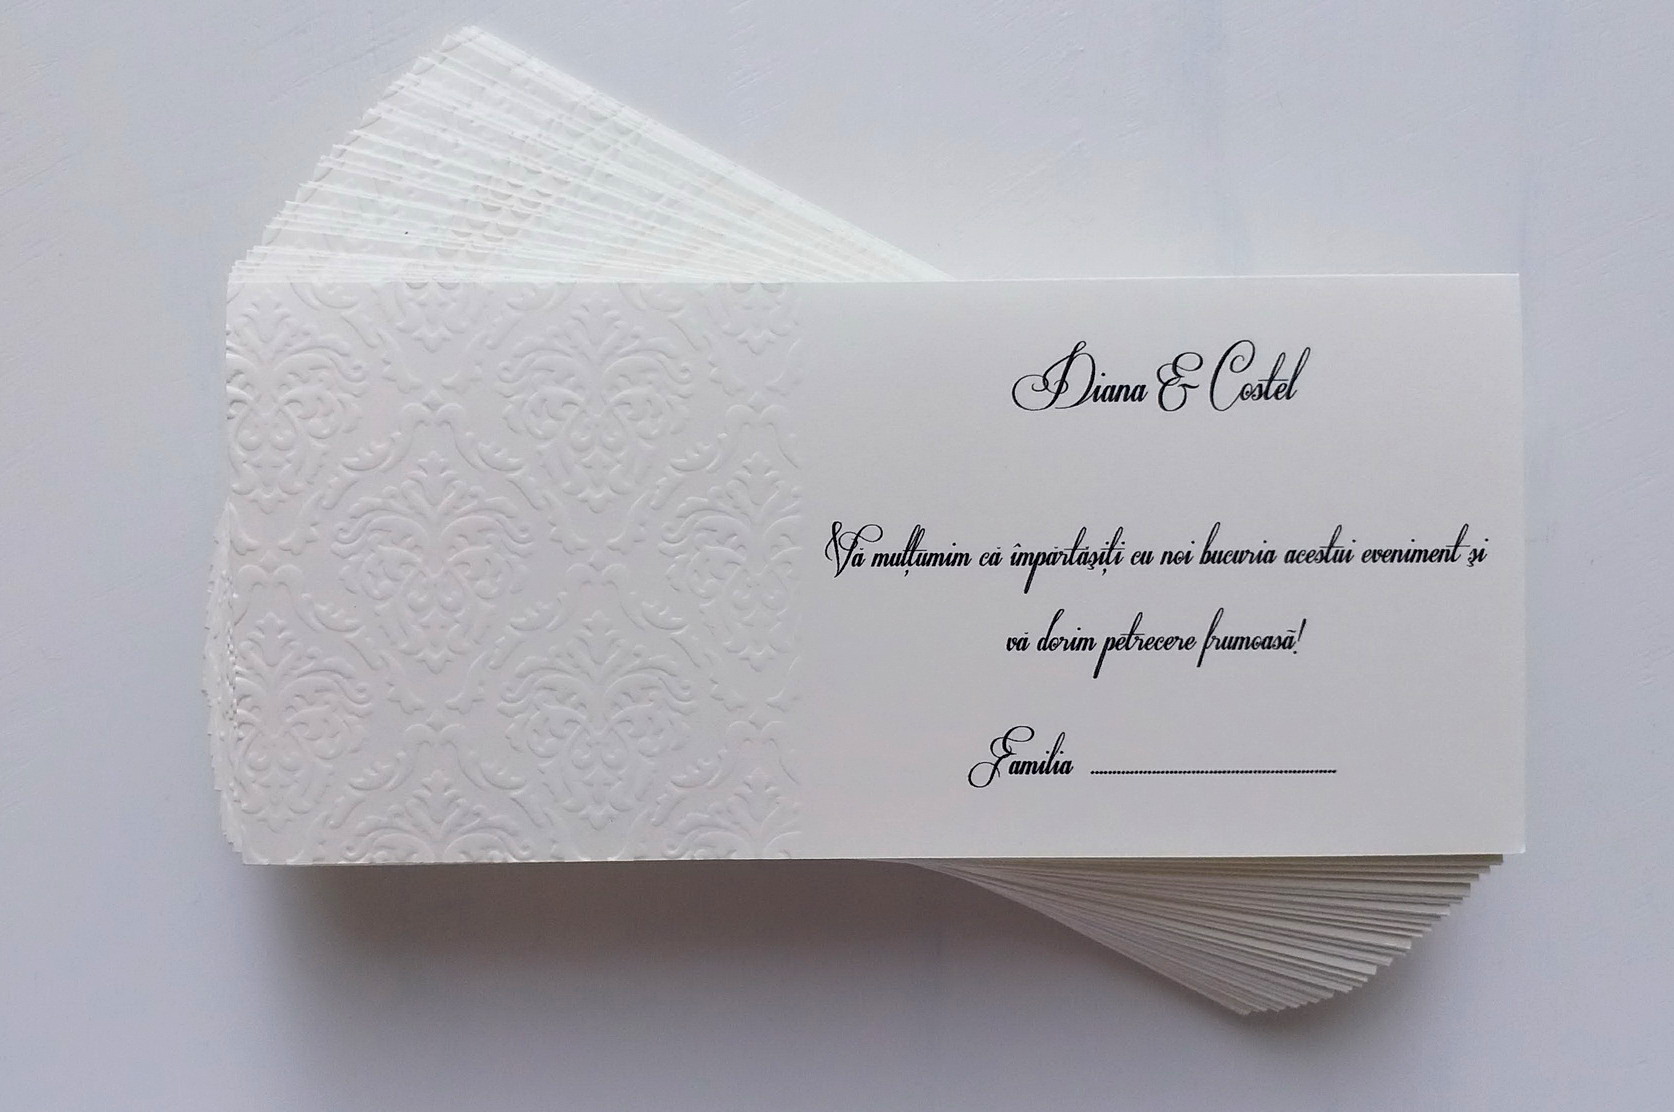 Diana & Costel
Vă mulțumim că împărtășiți cu noi bucuria acestui eveniment și
vă dorim petrecere frumoasă!
Familia ................................................